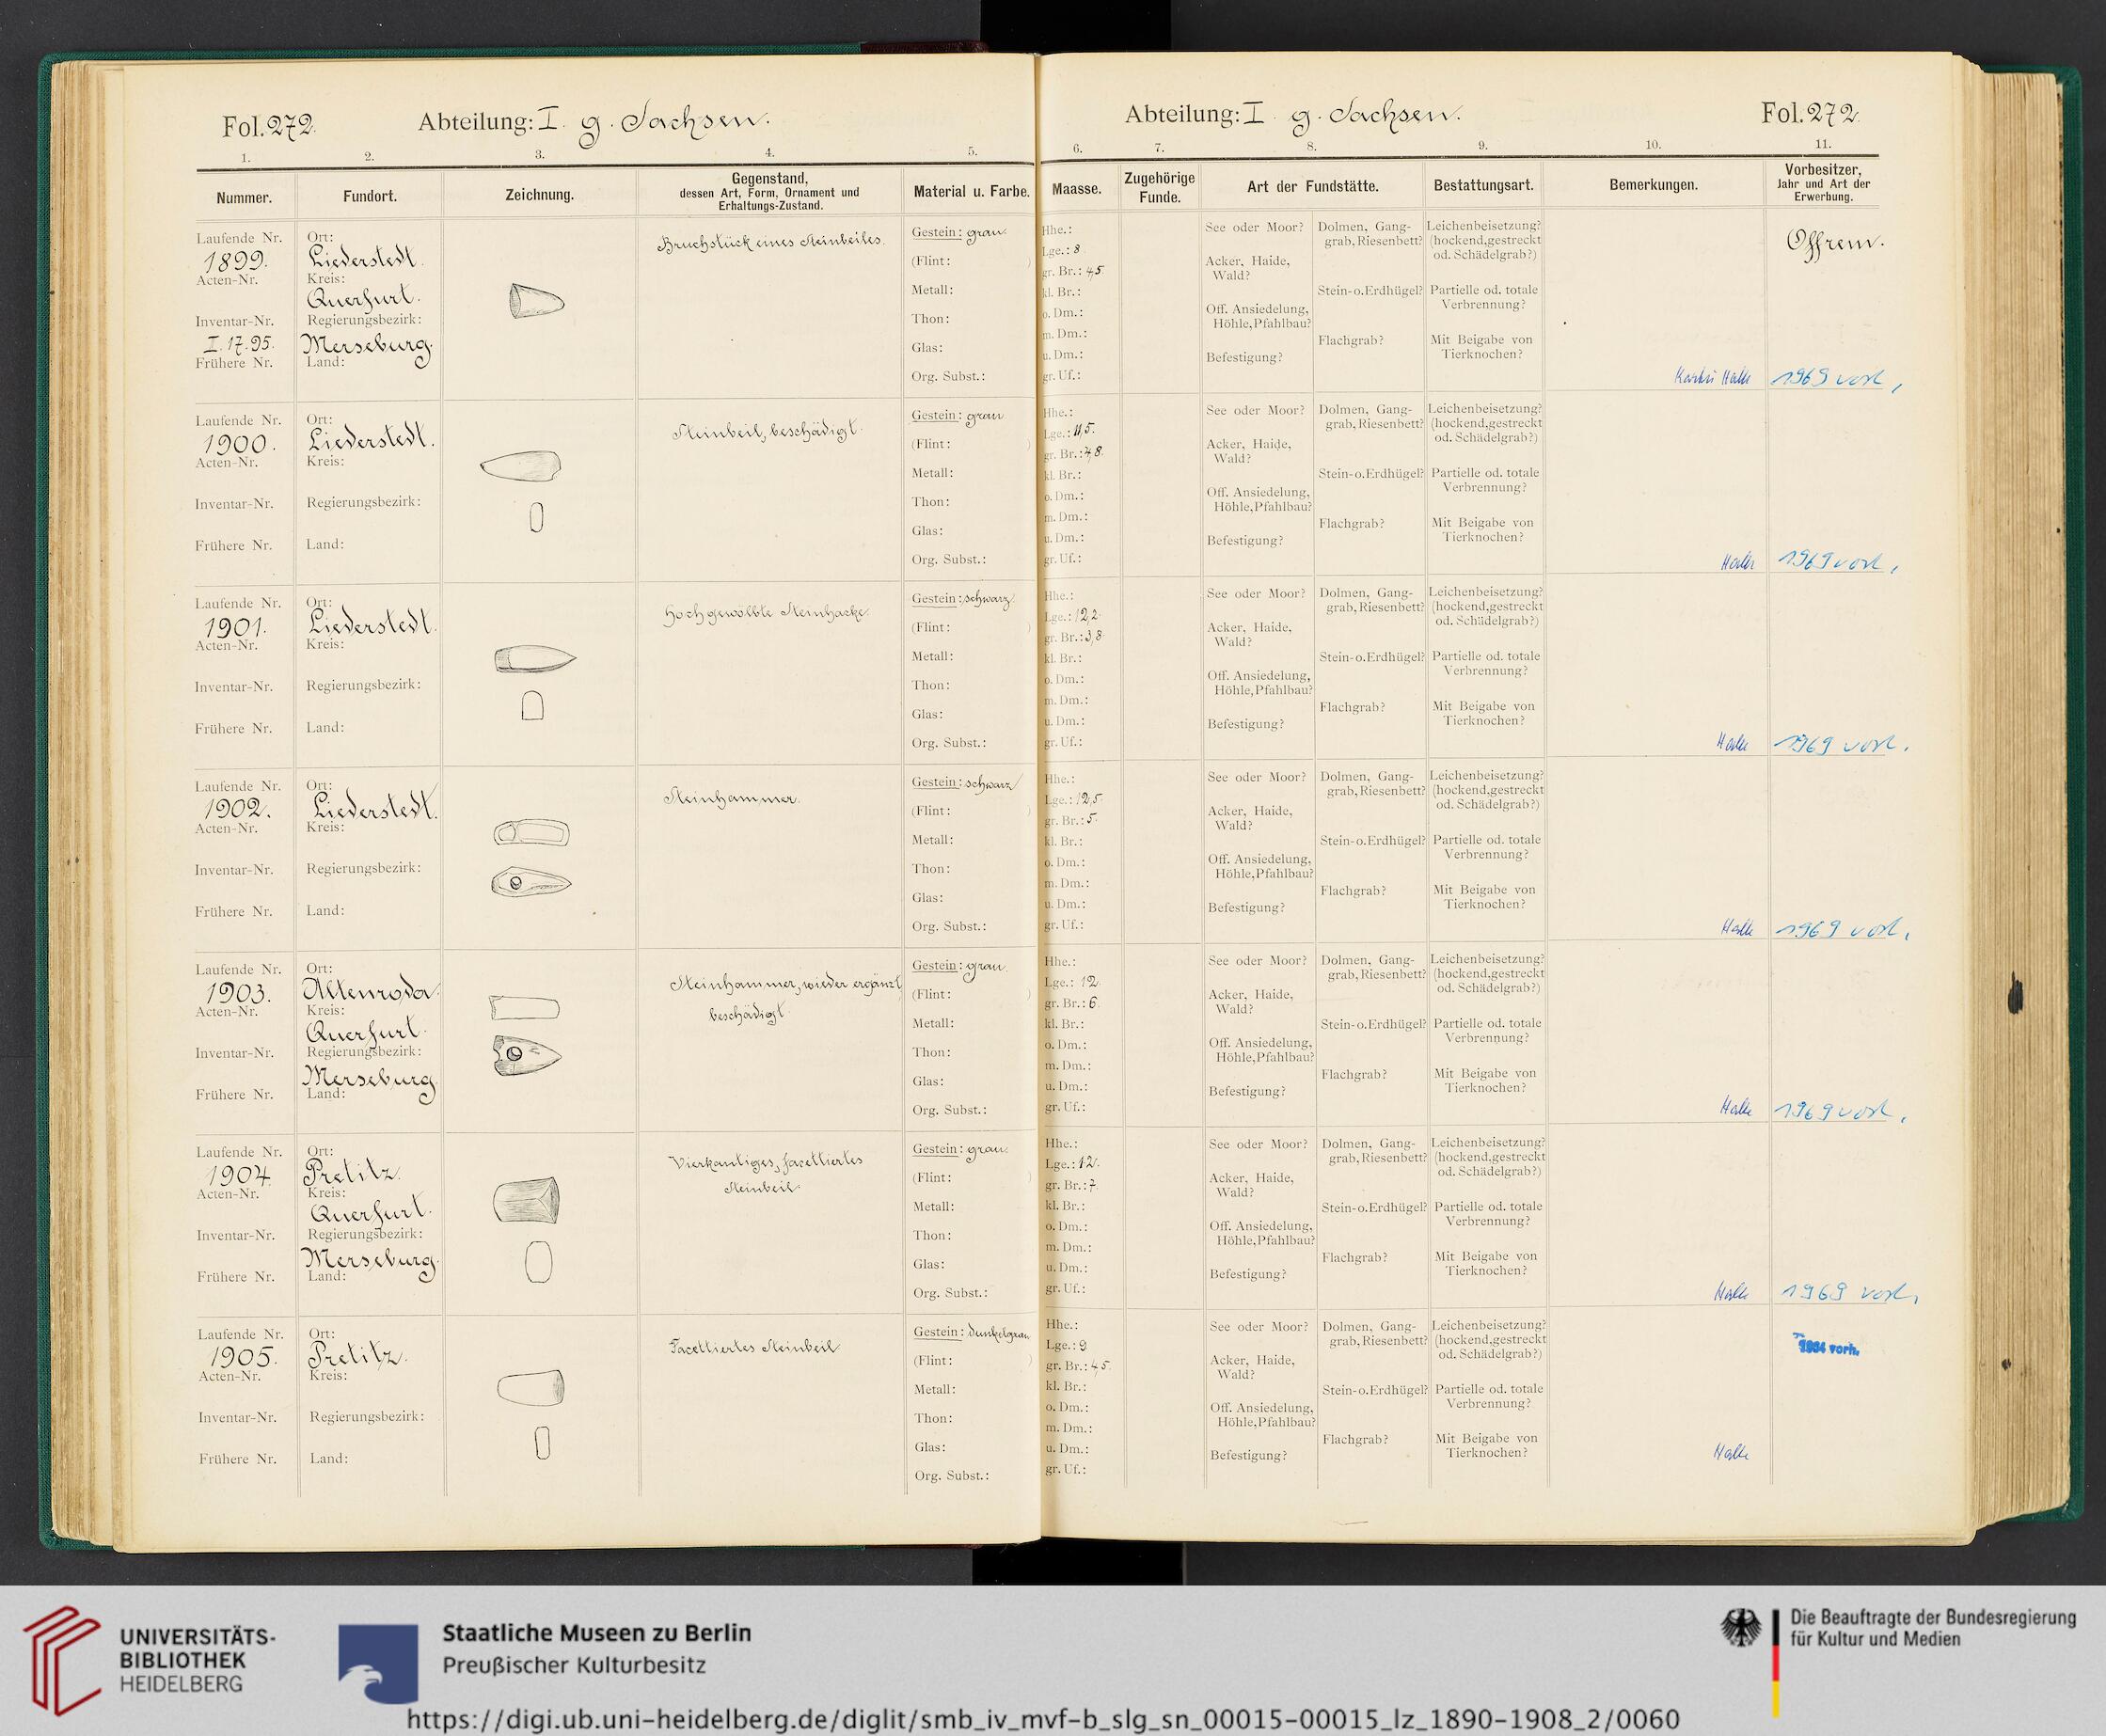 Fol. 272.
Abteilung: I. g. Sachsen.
1. 2. 3. 4. 5.
Nummer. Fundort. Zeichnung. Gegenstand, dessen Art, Form, Ornament und Erhaltungs-Zustand. Material u. Farbe.
Laufende Nr. 1899.
Acten-Nr.
Inventar-Nr. I. 17. 95.
Frühere Nr.
Ort: Liederstedt.
Kreis: Querfurt.
Regierungsbezirk: Merseburg.
Land:
Bruchstück eines Steinbeiles.
Gestein: grau.
(Flint: )
Metall:
Thon:
Glas:
Org. Subst.:
Laufende Nr. 1900.
Acten-Nr.
Inventar-Nr.
Frühere Nr.
Ort: Liederstedt.
Kreis:
Regierungsbezirk:
Land:
Steinbeil, beschädigt.
Gestein: grau
(Flint: )
Metall:
Thon:
Glas:
Org. Subst.:
Laufende Nr. 1901.
Acten-Nr.
Inventar-Nr.
Frühere Nr.
Ort: Liederstedt.
Kreis:
Regierungsbezirk:
Land:
Hochgewölbte Steinhacke.
Gestein: schwarz.
(Flint: )
Metall:
Thon:
Glas:
Org. Subst.:
Laufende Nr. 1902.
Acten-Nr.
Inventar-Nr.
Frühere Nr.
Ort: Liederstedt.
Kreis:
Regierungsbezirk:
Land:
Steinhammer.
Gestein: schwarz
(Flint: )
Metall:
Thon:
Glas:
Org. Subst.:
Laufende Nr. 1903.
Acten-Nr.
Inventar-Nr.
Frühere Nr.
Ort: Altenroda.
Kreis: Querfurt.
Regierungsbezirk: Merseburg.
Land:
Steinhammer, wieder ergänzt,
beschädigt.
Gestein: grau.
(Flint: )
Metall:
Thon:
Glas:
Org. Subst.:
Laufende Nr. 1904.
Acten-Nr.
Inventar-Nr.
Frühere Nr.
Ort: Pretitz.
Kreis: Querfurt.
Regierungsbezirk: Merseburg.
Land:
Vierkantiges, facettiertes
Steinbeil.
Gestein: grau.
(Flint: )
Metall:
Thon:
Glas:
Org. Subst.:
Laufende Nr. 1905.
Acten-Nr.
Inventar-Nr.
Frühere Nr.
Ort: Pretitz.
Kreis:
Regierungsbezirk:
Land:
Facettiertes Steinbeil.
Gestein: dunkelgrau
(Flint: )
Metall:
Thon:
Glas:
Org. Subst.:
Abteilung: I. g. Sachsen.
Fol. 272.
6. 7. 8. 9. 10. 11.
Maasse. Zugehörige Funde. Art der Fundstätte. Bestattungsart. Bemerkungen. Vorbesitzer, Jahr und Art der Erwerbung.
Hhe.:
Lge.: 8
gr. Br.: 4,5.
kl. Br.:
o. Dm.:
m. Dm.:
u. Dm.:
gr. Uf.:
See oder Moor?
Acker, Haide,
Wald?
Off. Ansiedelung,
Höhle, Pfahlbau?
Befestigung?
Dolmen, Gang-
grab, Riesenbett?
Stein- o. Erdhügel?
Flachgrab?
Leichenbeisetzung?
(hockend, gestreckt
od. Schädelgrab?)
Partielle od. totale
Verbrennung?
Mit Beigabe von
Tierknochen?
Halle
Offrem.
1969 vorh.
Hhe.:
Lge.: 11,5.
gr. Br.: 4,8.
kl. Br.:
o. Dm.:
m. Dm.:
u. Dm.:
gr. Uf.:
See oder Moor?
Acker, Haide,
Wald?
Off. Ansiedelung,
Höhle, Pfahlbau?
Befestigung?
Dolmen, Gang-
grab, Riesenbett?
Stein- o. Erdhügel?
Flachgrab?
Leichenbeisetzung?
(hockend, gestreckt
od. Schädelgrab?)
Partielle od. totale
Verbrennung?
Mit Beigabe von
Tierknochen?
Halle
1969 vorh.
Hhe.:
Lge.: 12,2.
gr. Br.: 3,8
kl. Br.:
o. Dm.:
m. Dm.:
u. Dm.:
gr. Uf.:
See oder Moor?
Acker, Haide,
Wald?
Off. Ansiedelung,
Höhle, Pfahlbau?
Befestigung?
Dolmen, Gang-
grab, Riesenbett?
Stein- o. Erdhügel?
Flachgrab?
Leichenbeisetzung?
(hockend, gestreckt
od. Schädelgrab?)
Partielle od. totale
Verbrennung?
Mit Beigabe von
Tierknochen?
Halle
1969 vorh.
Hhe.:
Lge.: 12,5.
gr. Br.: 5.
kl. Br.:
o. Dm.:
m. Dm.:
u. Dm.:
gr. Uf.:
See oder Moor?
Acker, Haide,
Wald?
Off. Ansiedelung,
Höhle, Pfahlbau?
Befestigung?
Dolmen, Gang-
grab, Riesenbett?
Stein- o. Erdhügel?
Flachgrab?
Leichenbeisetzung?
(hockend, gestreckt
od. Schädelgrab?)
Partielle od. totale
Verbrennung?
Mit Beigabe von
Tierknochen?
Halle
1969 vorh.
Hhe.:
Lge.: 12
gr. Br.: 6.
kl. Br.:
o. Dm.:
m. Dm.:
u. Dm.:
gr. Uf.:
See oder Moor?
Acker, Haide,
Wald?
Off. Ansiedelung,
Höhle, Pfahlbau?
Befestigung?
Dolmen, Gang-
grab, Riesenbett?
Stein- o. Erdhügel?
Flachgrab?
Leichenbeisetzung?
(hockend, gestreckt
od. Schädelgrab?)
Partielle od. totale
Verbrennung?
Mit Beigabe von
Tierknochen?
Halle
1969 vorh.
Hhe.:
Lge.: 12.
gr. Br.: 7.
kl. Br.:
o. Dm.:
m. Dm.:
u. Dm.:
gr. Uf.:
See oder Moor?
Acker, Haide,
Wald?
Off. Ansiedelung,
Höhle, Pfahlbau?
Befestigung?
Dolmen, Gang-
grab, Riesenbett?
Stein- o. Erdhügel?
Flachgrab?
Leichenbeisetzung?
(hockend, gestreckt
od. Schädelgrab?)
Partielle od. totale
Verbrennung?
Mit Beigabe von
Tierknochen?
Halle
1969 vorh.
Hhe.:
Lge.: 9
gr. Br.: 4,5.
kl. Br.:
o. Dm.:
m. Dm.:
u. Dm.:
gr. Uf.:
See oder Moor?
Acker, Haide,
Wald?
Off. Ansiedelung,
Höhle, Pfahlbau?
Befestigung?
Dolmen, Gang-
grab, Riesenbett?
Stein- o. Erdhügel?
Flachgrab?
Leichenbeisetzung?
(hockend, gestreckt
od. Schädelgrab?)
Partielle od. totale
Verbrennung?
Mit Beigabe von
Tierknochen?
Halle
vorh.
UNIVERSITÄTS-
BIBLIOTHEK
HEIDELBERG
Staatliche Museen zu Berlin
Preußischer Kulturbesitz
Die Beauftragte der Bundesregierung
für Kultur und Medien
https://digi.ub.uni-heidelberg.de/diglit/smb_iv_mvf-b_slg_sn_00015-00015_lz_1890-1908_2/0060